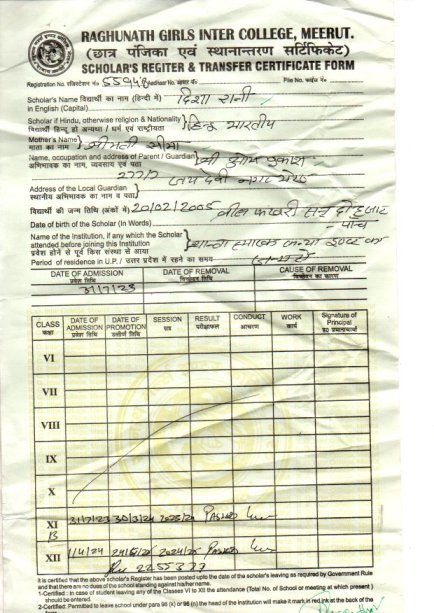 RAGHUNATH GIRLS INTER COLLEGE, MEERUT.
(छात्र पंजिका एवं स्थानान्तरण सर्टिफिकेट)
SCHOLAR'S REGITER & TRANSFER CERTIFICATE FORM
Registration No. रजिस्टेशन नं० Aadhaar No. आधार नं० File No. फाईल नं०
Scholar's Name विद्यार्थी का नाम (हिन्दी में) दिशा रानी
in English (Capital)
Scholar if Hindu, otherwise religion & Nationality हिन्दू भारतीय
विद्यार्थी हिन्दू हो अन्यथा / धर्म एवं राष्ट्रीयता
Mother's Name श्रीमती सीमा
माता का नाम
Name, occupation and address of Parent / Guardian श्री
अभिभावक का नाम, व्यवसाय एवं पता
277/2
Address of the Local Guardian
स्थानीय अभिभावक का नाम व पता
विद्यार्थी की जन्म तिथि (अंकों में) 20/02/2005 बीस फरवरी सन् दो हजार
Date of birth of the Scholar (In Words) पांच
Name of the Institution, if any which the Scholar
attended before joining this Institution
प्रवेश होने से पूर्व किस संस्था से आया
Period of residence in U.P. / उत्तर प्रदेश में रहने का समय जन्म से
DATE OF ADMISSION DATE OF REMOVAL CAUSE OF REMOVAL
प्रवेश तिथि निष्कासन तिथि निष्कासन का कारण
31/7/23
CLASS DATE OF ADMISSION DATE OF PROMOTION SESSION RESULT CONDUCT WORK Signature of Principal
कक्षा प्रवेश तिथि उत्तीर्ण तिथि सत्र परीक्षाफल आचरण कार्य ह० प्रधानाचार्या
VI
VII
VIII
IX
X
XI 31/7/23 30/3/24 2023/24 Passed
B
XII 1/4/24 2024/25 Passed
2255377
It is certified that the above scholar's Register has been posted upto the date of the scholar's leaving as required by Government Rule
and that there are no dues of the school standing against his/her name.
1-Certified : in case of student leaving any of the Classes VI to XII the attendance (Total No. of School or meeting at which present )
should be entered.
2-Certified: Permitted to leave school under para 96 (k) or 96 (n) the head of the institution will make it mark in red ink at the back of the